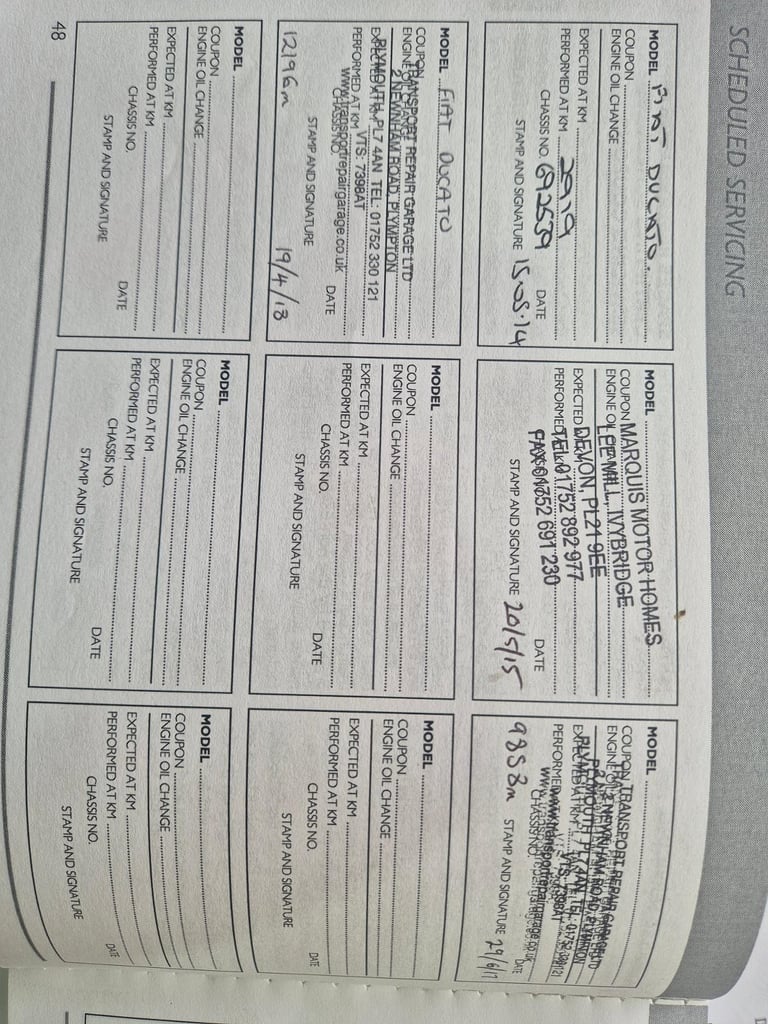 SCHEDULED SERVICING
MODEL FIAT DUCATO.
COUPON
ENGINE OIL CHANGE
EXPECTED AT KM
PERFORMED AT KM 2919
CHASSIS NO. 692539
DATE
STAMP AND SIGNATURE 15.05.14
MODEL
COUPON MARQUIS MOTOR HOMES
ENGINE OIL LEE MILL, IVYBRIDGE
EXPECTED DEVON, PL21 9EE
PERFORMED TEL: 01752 892 977
FAX: 01752 691 230
DATE
STAMP AND SIGNATURE 20/5/15
MODEL
COUPON TRANSPORT REPAIR GARAGE LTD
ENGINE OIL 2 NEWNHAM ROAD, PLYMPTON
EXPECTED AT KM PLYMOUTH PL7 4AN TEL: 01752 330 121
PERFORMED VTS: 7398AT
www.transportrepairgarage.co.uk
CHASSIS NO.
DATE
9858m STAMP AND SIGNATURE 29/6/17
MODEL FIAT DUCATO
COUPON TRANSPORT REPAIR GARAGE LTD
ENGINE OIL 2 NEWNHAM ROAD, PLYMPTON
EXPECTED AT KM PLYMOUTH PL7 4AN TEL: 01752 330 121
PERFORMED AT KM VTS: 7398AT
www.transportrepairgarage.co.uk
CHASSIS NO.
DATE
STAMP AND SIGNATURE
12196m 19/4/18
MODEL
COUPON
ENGINE OIL CHANGE
EXPECTED AT KM
PERFORMED AT KM
CHASSIS NO.
DATE
STAMP AND SIGNATURE
MODEL
COUPON
ENGINE OIL CHANGE
EXPECTED AT KM
PERFORMED AT KM
CHASSIS NO.
DATE
STAMP AND SIGNATURE
MODEL
COUPON
ENGINE OIL CHANGE
EXPECTED AT KM
PERFORMED AT KM
CHASSIS NO.
DATE
STAMP AND SIGNATURE
MODEL
COUPON
ENGINE OIL CHANGE
EXPECTED AT KM
PERFORMED AT KM
CHASSIS NO.
DATE
STAMP AND SIGNATURE
MODEL
COUPON
ENGINE OIL CHANGE
EXPECTED AT KM
PERFORMED AT KM
CHASSIS NO.
DATE
STAMP AND SIGNATURE
48